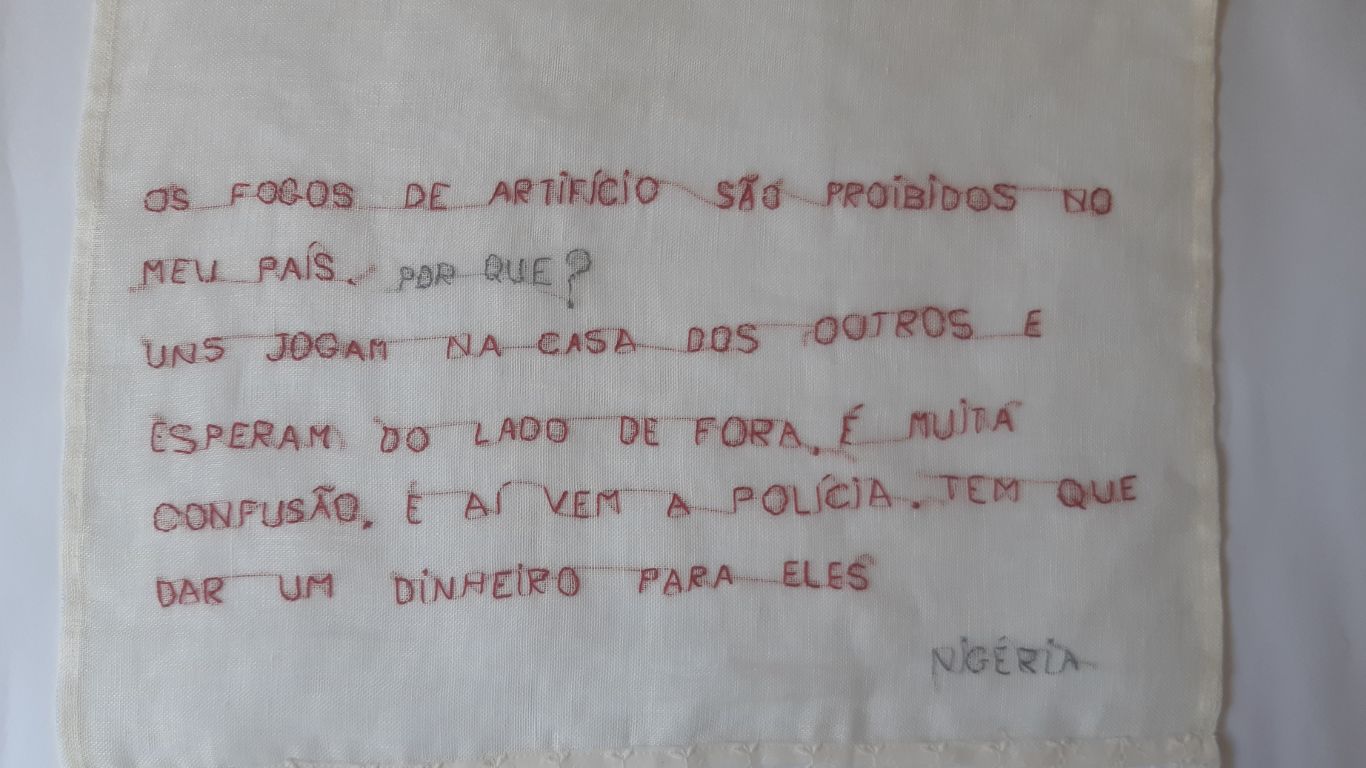 OS FOGOS DE ARTIFÍCIO SÃO PROIBIDOS NO
MEU PAÍS. POR QUE?
UNS JOGAM NA CASA DOS OUTROS E
ESPERAM DO LADO DE FORA. É MUITA
CONFUSÃO. E AÍ VEM A POLÍCIA. TEM QUE
DAR UM DINHEIRO PARA ELES
NIGÉRIA